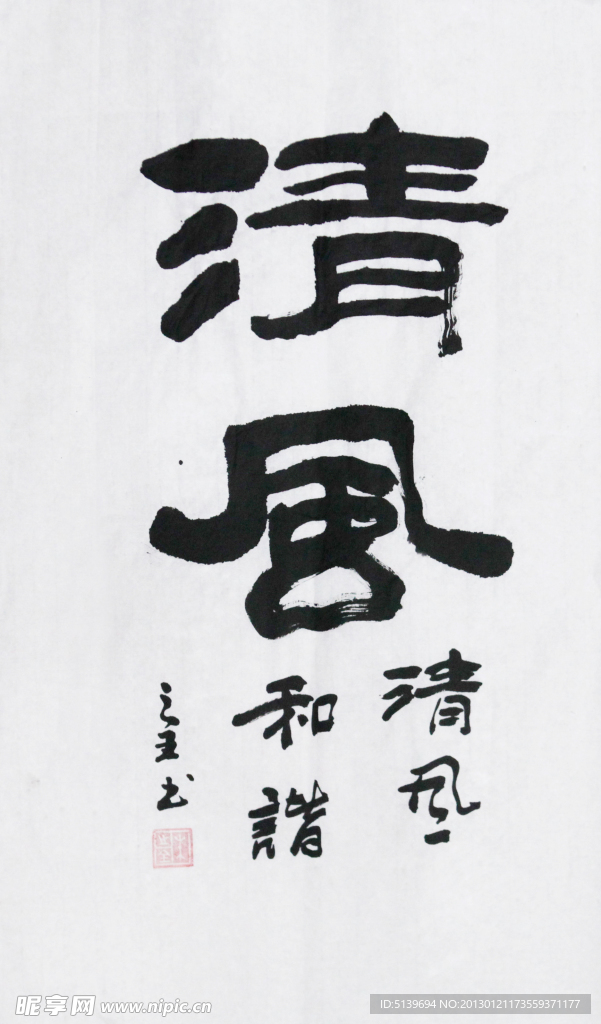 清風
清風
和諧
之王书
昵享网 www.nipic.cn
ID:5139694 NO:20130121173559371177